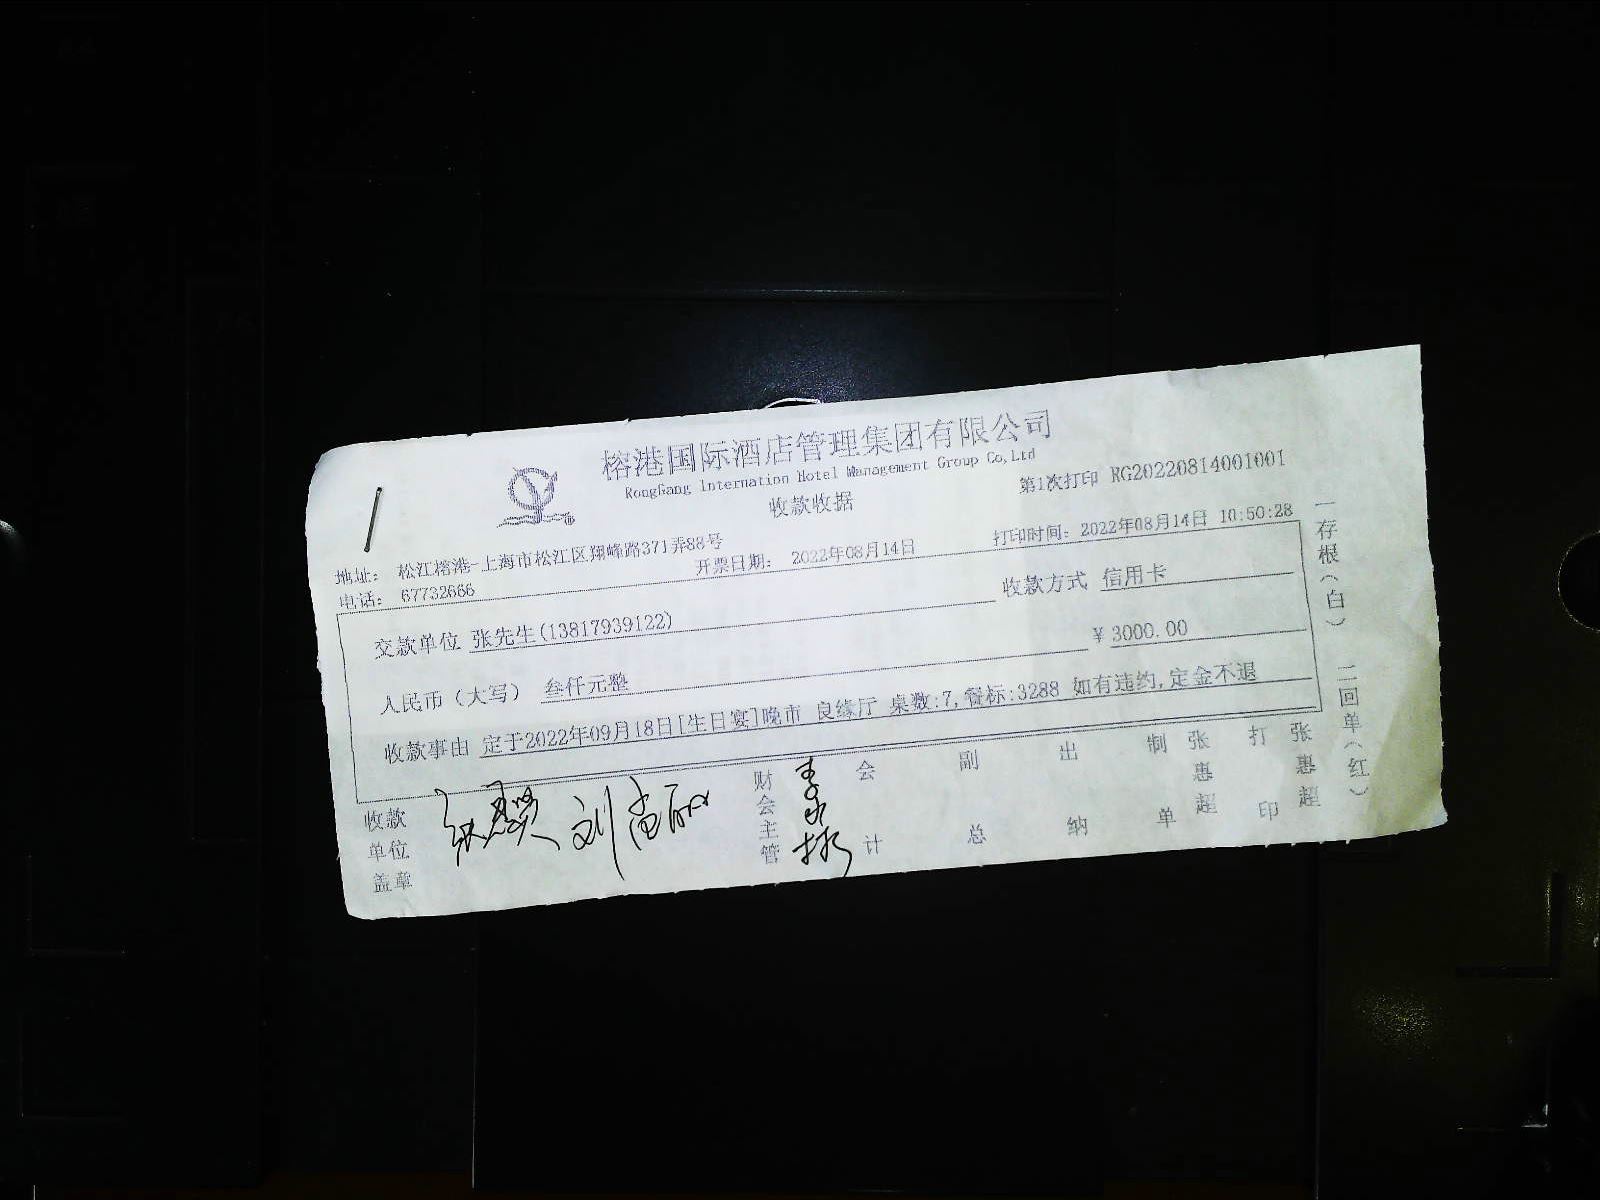 榕港国际酒店管理集团有限公司
RongGang Internation Hotel Management Group Co,Ltd
收款收据
第1次打印 RG20220814001001
地址： 松江榕港-上海市松江区翔峰路371弄88号
电话： 67732666
开票日期： 2022年08月14日
打印时间： 2022年08月14日 10:50:28
交款单位 张先生(13817939122)
收款方式 信用卡
人民币（大写） 叁仟元整
￥ 3000.00
收款事由 定于2022年09月18日[生日宴]晚市 良缘厅 桌数:7,餐标:3288 如有违约,定金不退
收款单位盖章
财会主管
会计
副总
出纳
制单 张惠超
打印 张惠超
一存根（白） 二回单（红）